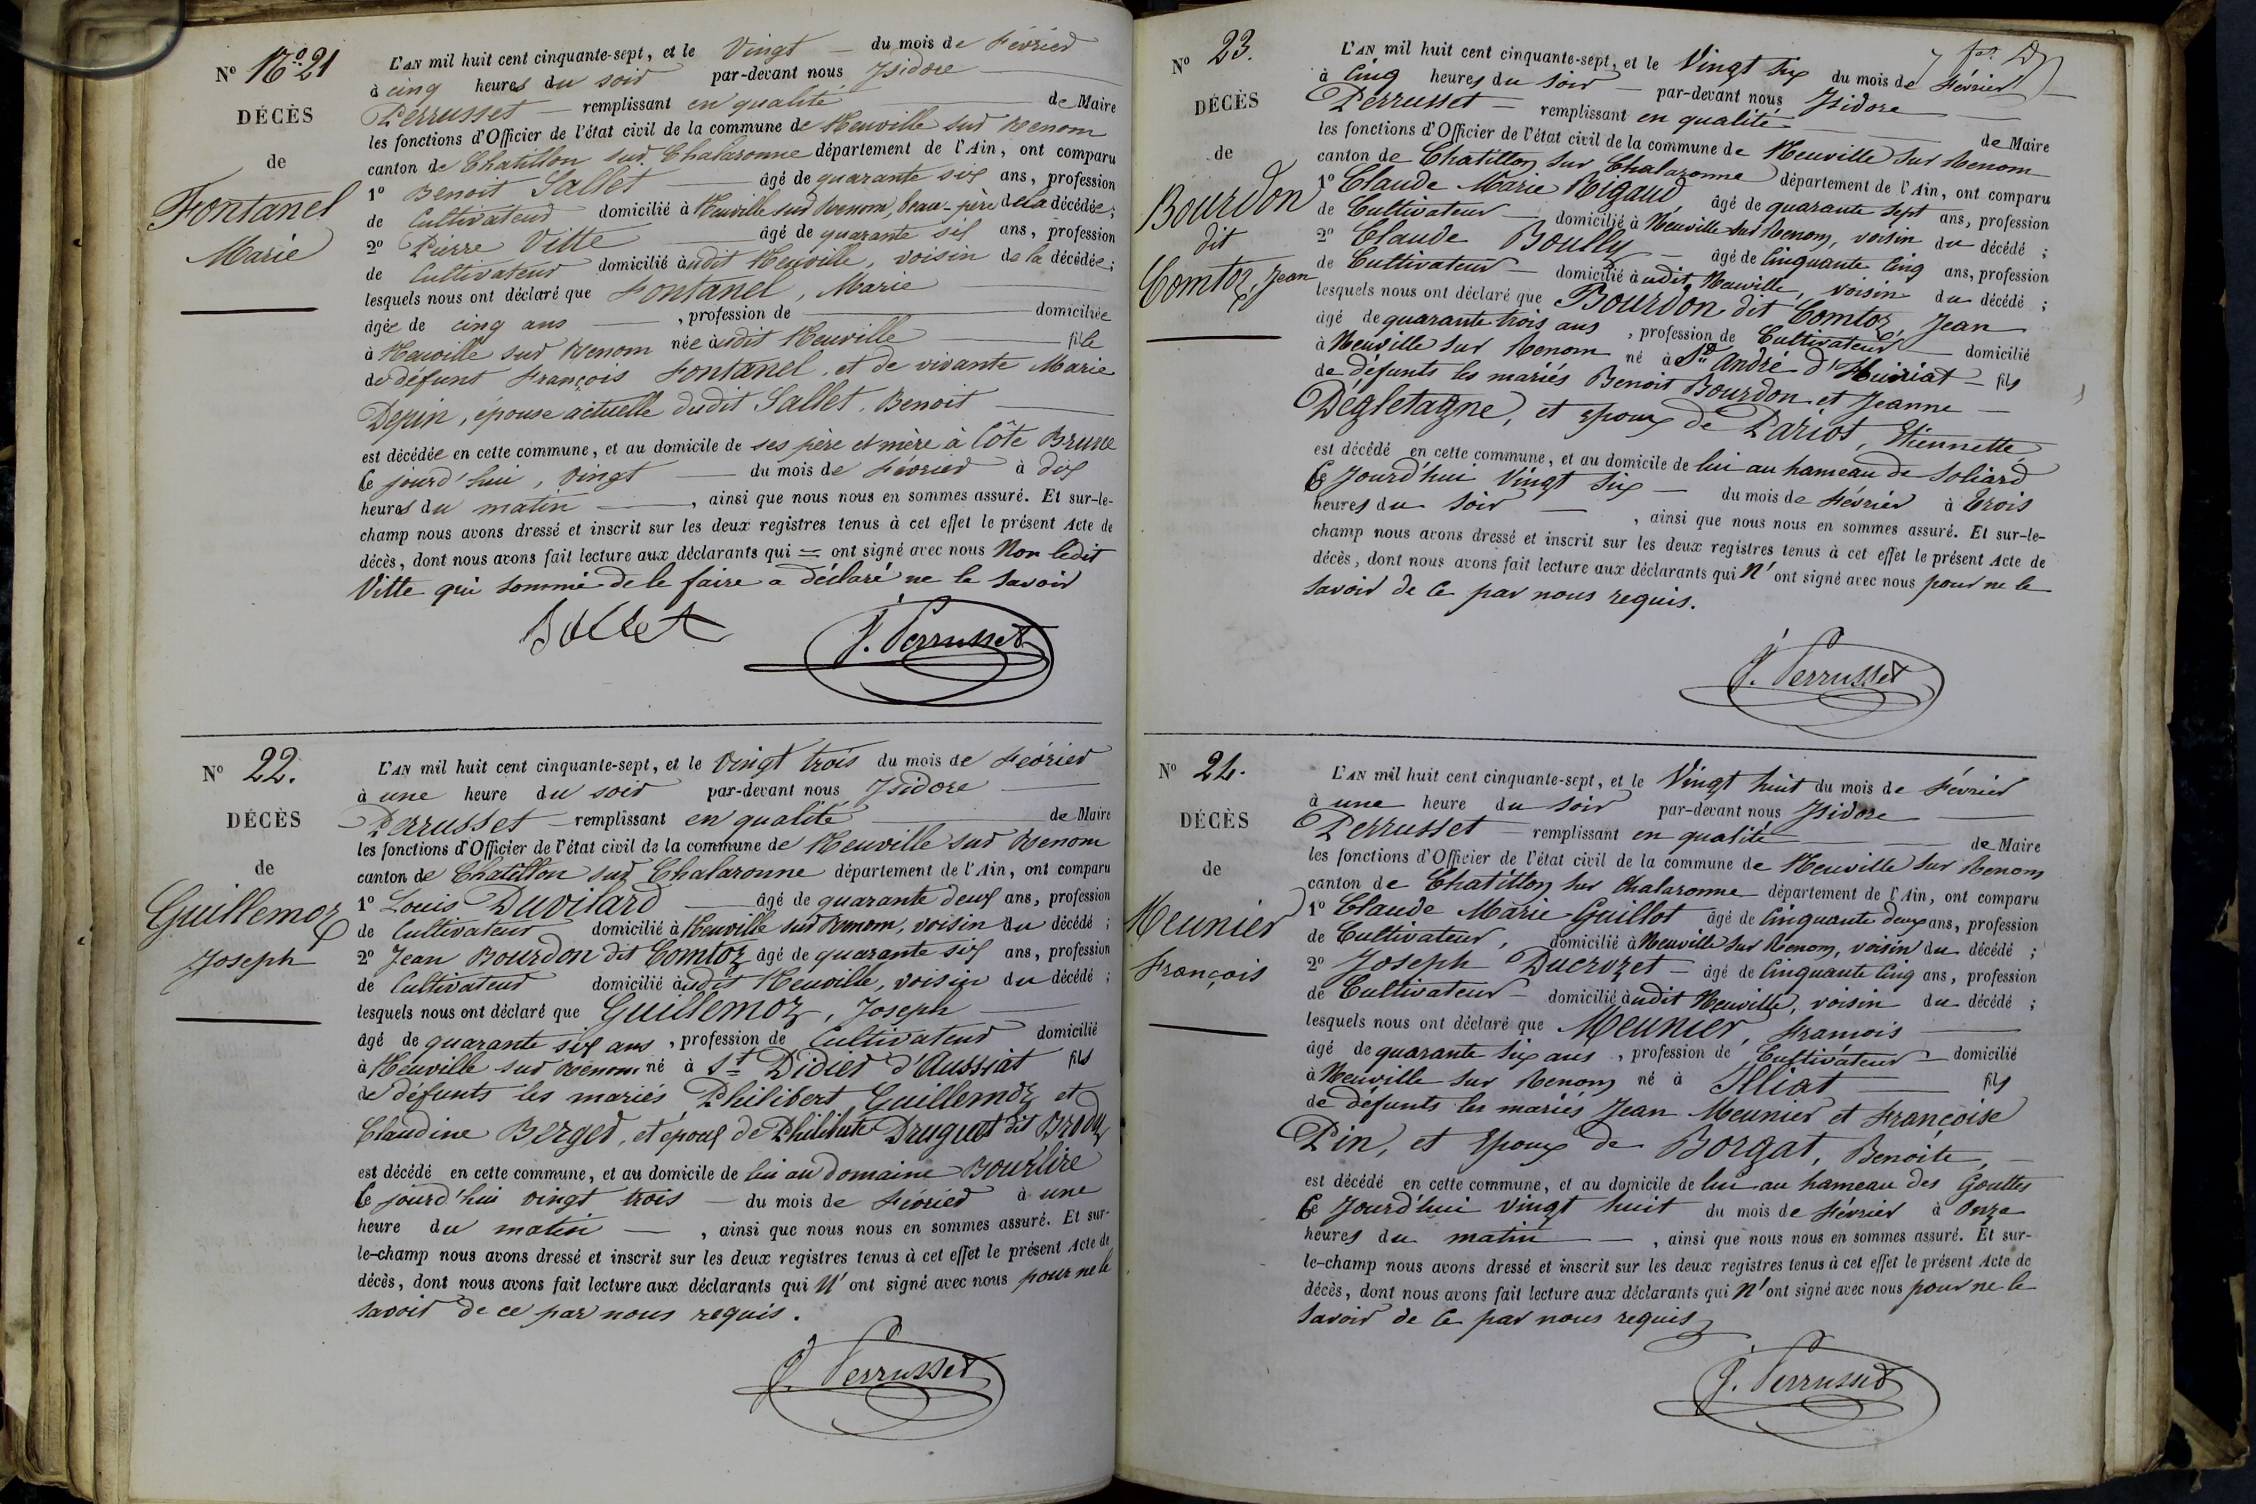 N° N° 21
DÉCÈS
de
Fontanel
Marie
L'AN mil huit cent cinquante-sept, et le Vingt — du mois de Février
à cinq heures du soir par-devant nous Isidore
Perrusset — remplissant en qualité de Maire
les fonctions d'Officier de l'état civil de la commune de Neuville sur Renom
canton de Chatillon sur Chalaronne département de l'Ain, ont comparu
1° Benoit Sallet — âgé de quarante six ans, profession
de Cultivateur domicilié à Neuville sur Renom, beau-père de la décédée;
2° Pierre Vitte — âgé de quarante six ans, profession
de Cultivateur domicilié audit Neuville, voisin de la décédée;
lesquels nous ont déclaré que Fontanel, Marie
âgée de cinq ans —, profession de — domiciliée
à Neuville sur Renom née audit Neuville — fille
de défunt François Fontanel, et de vivante Marie
Depin, épouse actuelle dudit Sallet, Benoit —
est décédée en cette commune, et au domicile de ses père et mère à Côte Brune
Ce jourd'hui, vingt — du mois de Février à dix
heures du matin —, ainsi que nous nous en sommes assuré. Et sur-le-
champ nous avons dressé et inscrit sur les deux registres tenus à cet effet le présent Acte de
décès, dont nous avons fait lecture aux déclarants qui = ont signé avec nous Non ledit
Vitte qui sommé de le faire a déclaré ne le savoir
Sallet J. Perrusset
N° 22.
DÉCÈS
de
Guillemoz
Joseph
L'AN mil huit cent cinquante-sept, et le Vingt trois du mois de Février
à une heure du soir par-devant nous Isidore —
Perrusset — remplissant en qualité — de Maire
les fonctions d'Officier de l'état civil de la commune de Neuville sur Renom
canton de Chatillon sur Chalaronne département de l'Ain, ont comparu
1° Louis Duvilard — âgé de quarante deux ans, profession
de Cultivateur domicilié à Neuville sur Renom, voisin du décédé;
2° Jean Bourdon dit Comtoz âgé de quarante six ans, profession
de Cultivateur domicilié audit Neuville, voisin du décédé;
lesquels nous ont déclaré que Guillemoz, Joseph —
âgé de quarante six ans, profession de Cultivateur domicilié
à Neuville sur Renom né à St Didier d'Aussiat fils
de défunts les mariés Philibert Guillemoz et
Claudine Berger, et époux de Philiberte Druguet dit Broduz
est décédé en cette commune, et au domicile de lui au domaine Bourlire
Ce jourd'hui vingt trois — du mois de Février à une
heure du matin —, ainsi que nous nous en sommes assuré. Et sur-
le-champ nous avons dressé et inscrit sur les deux registres tenus à cet effet le présent Acte de
décès, dont nous avons fait lecture aux déclarants qui N'ont signé avec nous pour ne le
savoir de ce par nous requis.
J. Perrusset
N° 23.
DÉCÈS
de
Bourdon
dit
Comtoz, Jean
L'AN mil huit cent cinquante-sept, et le Vingt Six du mois de Février
à Cinq heures du Soir — par-devant nous Isidore —
Perrusset — remplissant en qualité — de Maire
les fonctions d'Officier de l'état civil de la commune de Neuville sur Renom
canton de Chatillon sur Chalaronne département de l'Ain, ont comparu
1° Claude Marie Rigaud âgé de quarante sept ans, profession
de Cultivateur — domicilié à Neuville sur Renom, voisin du décédé;
2° Claude Boully — âgé de Cinquante Cinq ans, profession
de Cultivateur — domicilié audit Neuville, voisin du décédé;
lesquels nous ont déclaré que Bourdon dit Comtoz, Jean
âgé de quarante trois ans, profession de Cultivateur — domicilié
à Neuville sur Renom né à St André d'Huiriat — fils
de défunts les mariés Benoit Bourdon et Jeanne —
Dégletagne, et Epoux de Pariot, Etiennette
est décédé en cette commune, et au domicile de lui au hameau de Soliard
Ce Jourd'hui Vingt Six — du mois de Février à trois
heures du Soir —, ainsi que nous nous en sommes assuré. Et sur-le-
champ nous avons dressé et inscrit sur les deux registres tenus à cet effet le présent Acte de
décès, dont nous avons fait lecture aux déclarants qui N'ont signé avec nous pour ne le
savoir de ce par nous requis.
J. Perrusset
N° 24.
DÉCÈS
de
Meunier
François
L'AN mil huit cent cinquante-sept, et le Vingt huit du mois de Février
à une heure du Soir par-devant nous Isidore —
Perrusset — remplissant en qualité — de Maire
les fonctions d'Officier de l'état civil de la commune de Neuville sur Renom
canton de Chatillon sur Chalaronne département de l'Ain, ont comparu
1° Claude Marie Guillot âgé de Cinquante deux ans, profession
de Cultivateur, domicilié à Neuville sur Renom, voisin du décédé;
2° Joseph Ducrozet — âgé de Cinquante Cinq ans, profession
de Cultivateur — domicilié audit Neuville, voisin du décédé;
lesquels nous ont déclaré que Meunier, François —
âgé de quarante six ans, profession de Cultivateur — domicilié
à Neuville sur Renom né à Illiat — fils
de défunts les mariés Jean Meunier et Françoise
Pin, et Epoux de Borgat, Benoite, —
est décédé en cette commune, et au domicile de lui au hameau des Gouttes
Ce Jourd'hui Vingt huit du mois de Février à Onze
heures du matin —, ainsi que nous nous en sommes assuré. Et sur-
le-champ nous avons dressé et inscrit sur les deux registres tenus à cet effet le présent Acte de
décès, dont nous avons fait lecture aux déclarants qui N'ont signé avec nous pour ne le
savoir de ce par nous requis
J. Perrusset